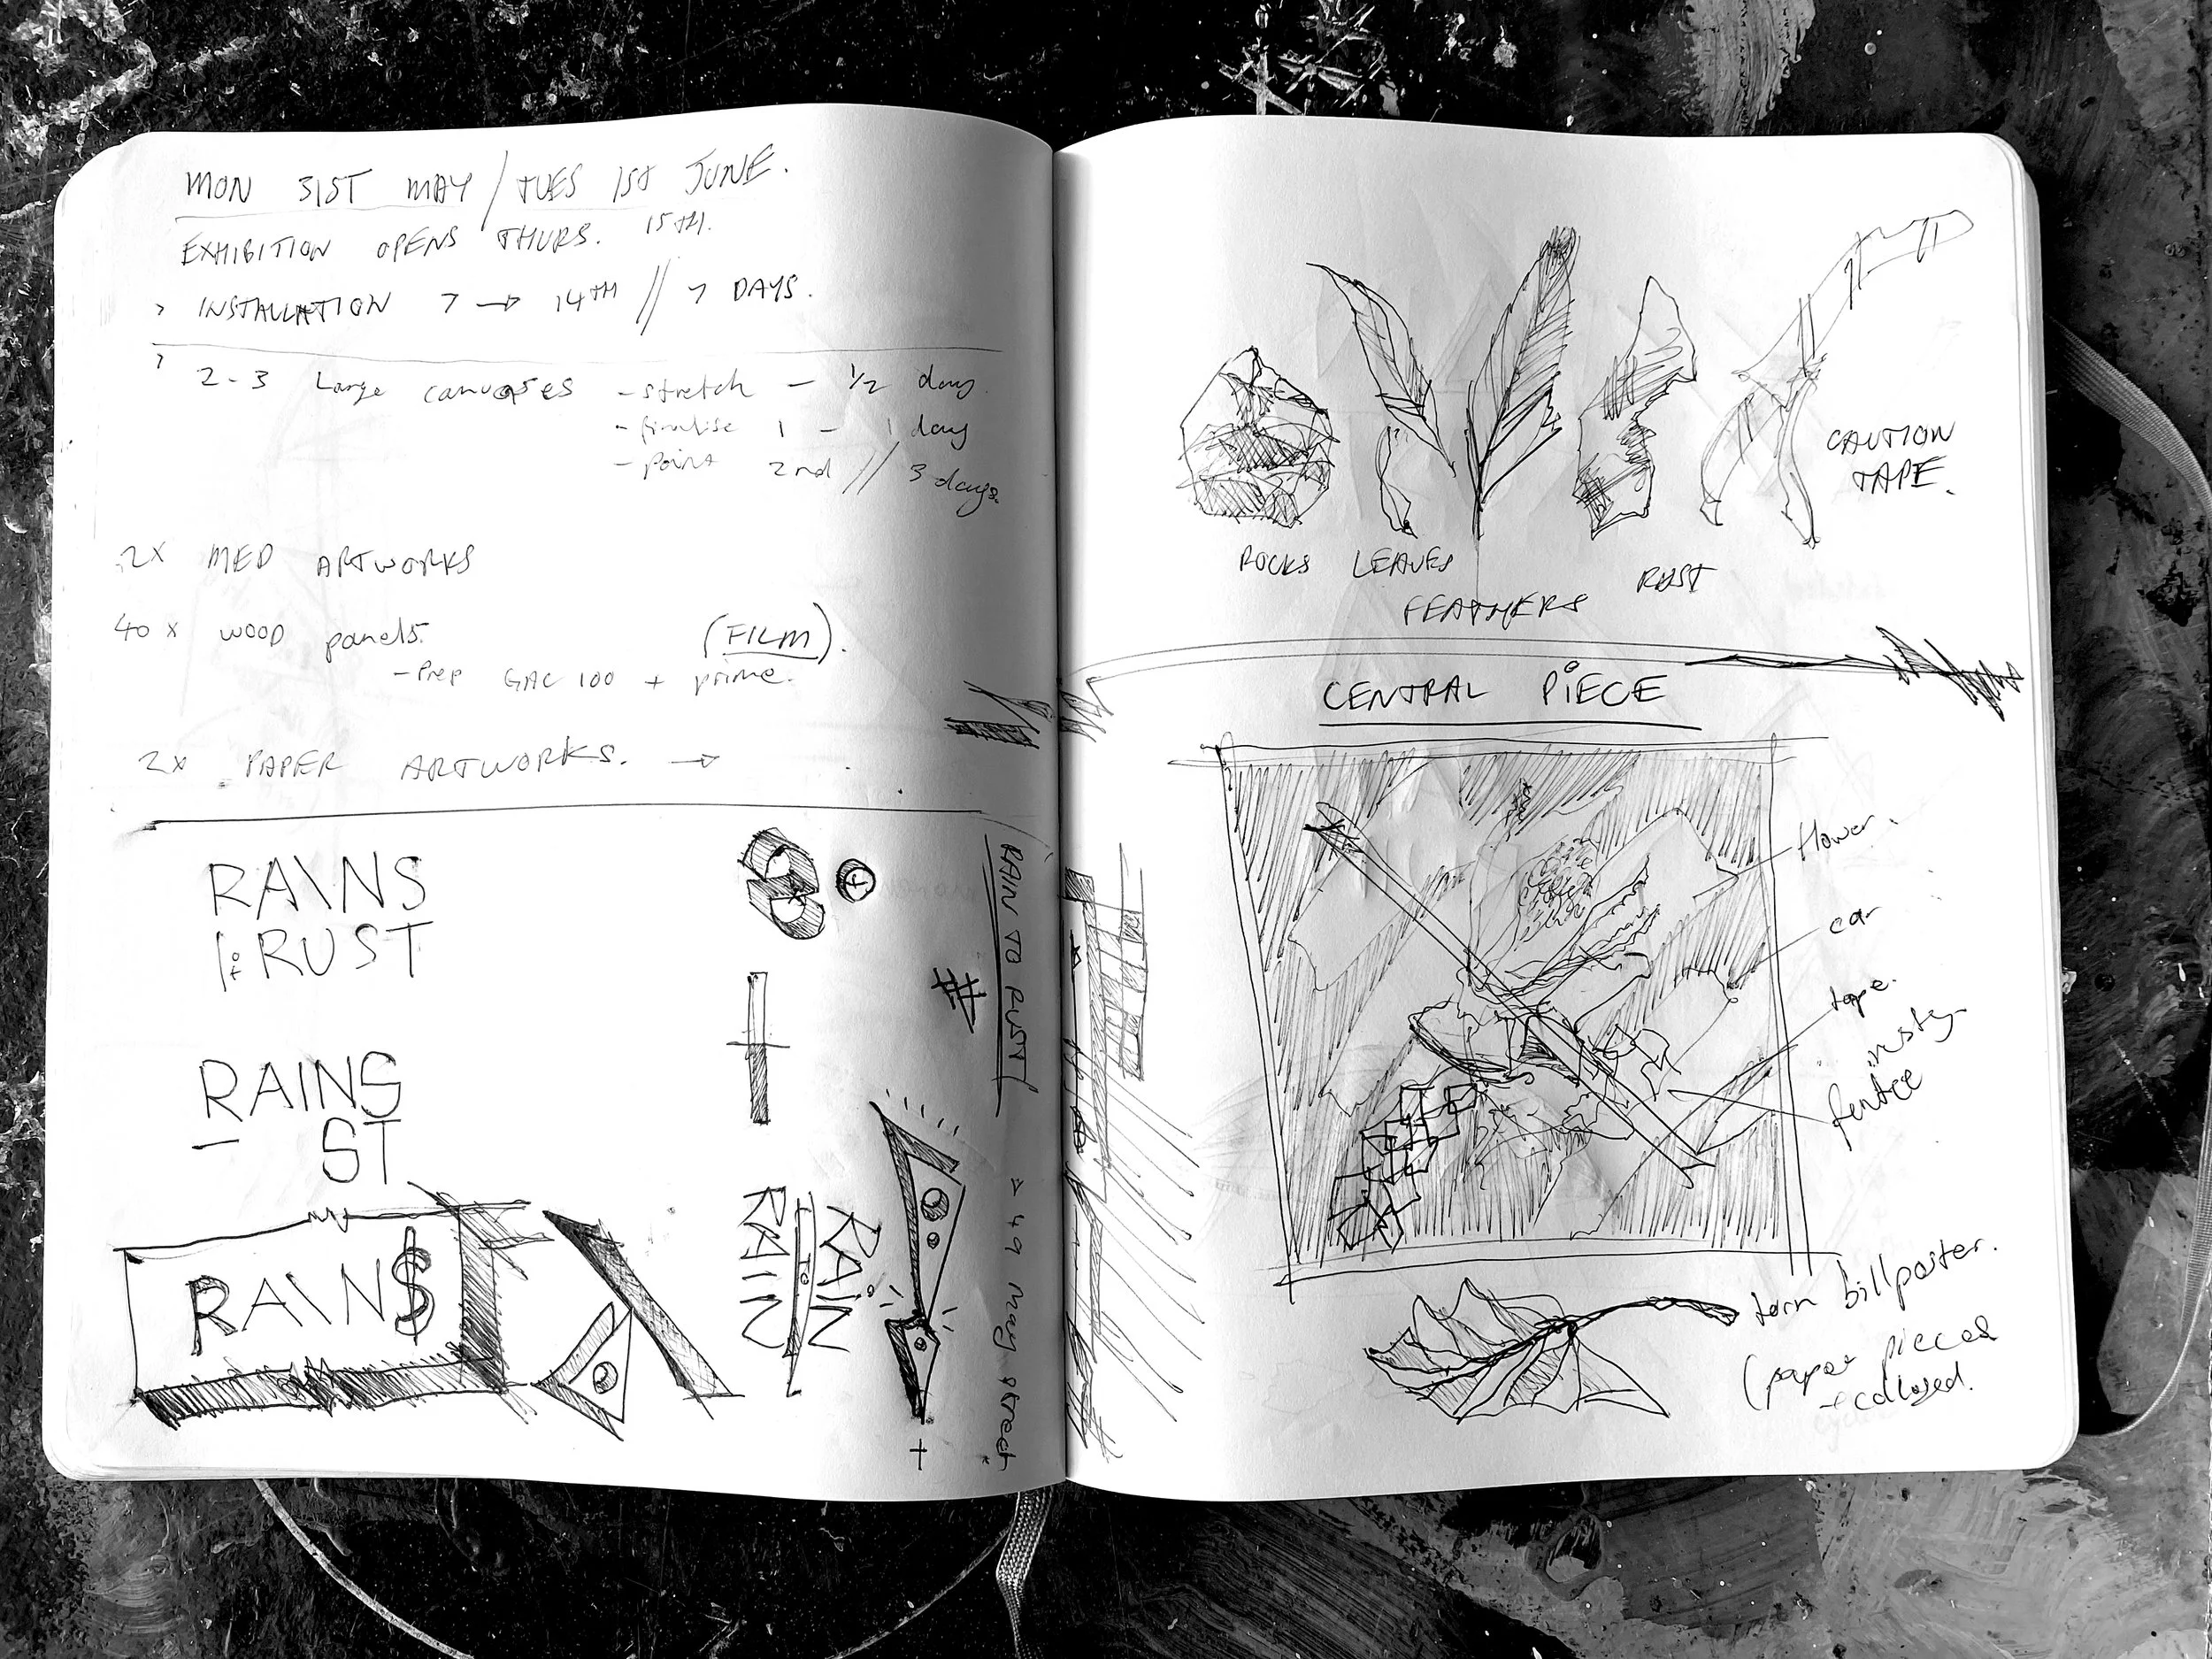 MON 31ST MAY / TUES 1ST JUNE.
EXHIBITION OPENS THURS. 15TH.
> INSTALLATION 7 → 14TH // 7 DAYS.
> 2-3 Large canvases - stretch - 1/2 day
- finalise 1 - 1 day
- paint 2nd // 3 days.
2X MED ARTWORKS
40 X WOOD panels (FILM).
- Prep GAC 100 + prime.
2X PAPER ARTWORKS. →
RA\NS
RUST
RAINS
ST
RA\N$
RAIN
TO
RAIN
RAIN TO RUST
49 May Street
ROCKS LEAVES
FEATHERS
RUST
CAUTION
TAPE.
CENTRAL PIECE
flower.
car
tape.
rusty
torn billposter.
(paper pieces